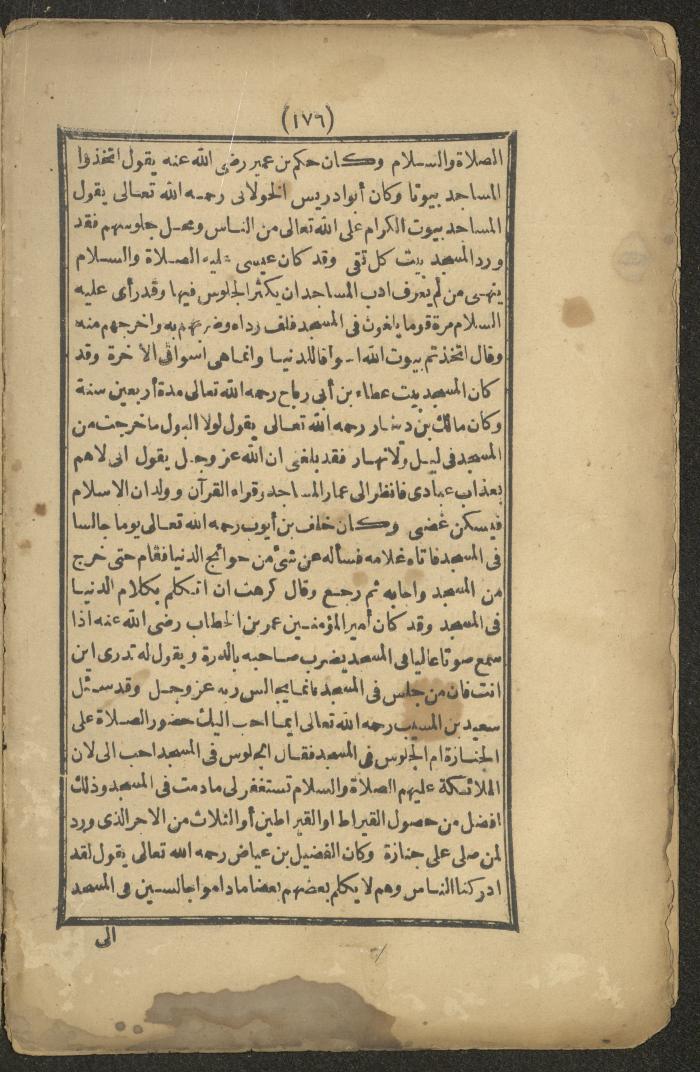 (١٧٦)
الصلاة والسلام وكان حكم بن عمير رضى الله عنه يقول اتخذوا
المساجد بيوتا وكان أبو ادريس الخولانى رحمه الله تعالى يقول
المساجد بيوت الكرام على الله تعالى من الناس ومحل جلوسهم فقد
ورد المسجد بيت كل تقى وقد كان عيسى عليه الصلاة والسلام
ينهى من لم يعرف ادب المساجد ان يكثر الجلوس فيها وقد رأى عليه
السلام مرة قوما يلغون فى المسجد فلف رداه وضربهم به واخرجهم منه
وقال اتخذتم بيوت الله اسواقا للدنيا وانما هى اسواق الآخرة وقد
كان المسجد بيت عطاء بن أبى رباح رحمه الله تعالى مدة أربعين سنة
وكان مالك بن دينار رحمه الله تعالى يقول لولا البول ما خرجت من
المسجد فى ليل ولا نهار فقد بلغنى ان الله عز وجل يقول انى لاهم
بعذاب عبادى فانظر الى عمار المساجد وقراء القرآن وولدان الاسلام
فيسكن غضبى وكان خلف بن أيوب رحمه الله تعالى يوما جالسا
فى المسجد فاتاه غلامه فسأله عن شئ من حوائج الدنيا فقام حتى خرج
من المسجد واجابه ثم رجع وقال كرهت ان اتكلم بكلام الدنيا
فى المسجد وقد كان أمير المؤمنين عمر بن الخطاب رضى الله عنه اذا
سمع صوتا عاليا فى المسجد يضرب صاحبه بالدرة ويقول له تدرى اين
انت فان من جلس فى المسجد فانما يجالس ربه عز وجل وقد سئل
سعيد بن المسيب رحمه الله تعالى ايما احب اليك حضور الصلاة على
الجنازة ام الجلوس فى المسجد فقال الجلوس فى المسجد احب الى لان
الملائكة عليهم الصلاة والسلام تستغفر لى ما دمت فى المسجد وذلك
افضل من حصول القيراط او القيراطين أو الثلاث من الاجر الذى ورد
لمن صلى على جنازة وكان الفضيل بن عياض رحمه الله تعالى يقول لقد
ادركنا الناس وهم لا يكلم بعضهم بعضا ما داموا جالسين فى المسجد
الى